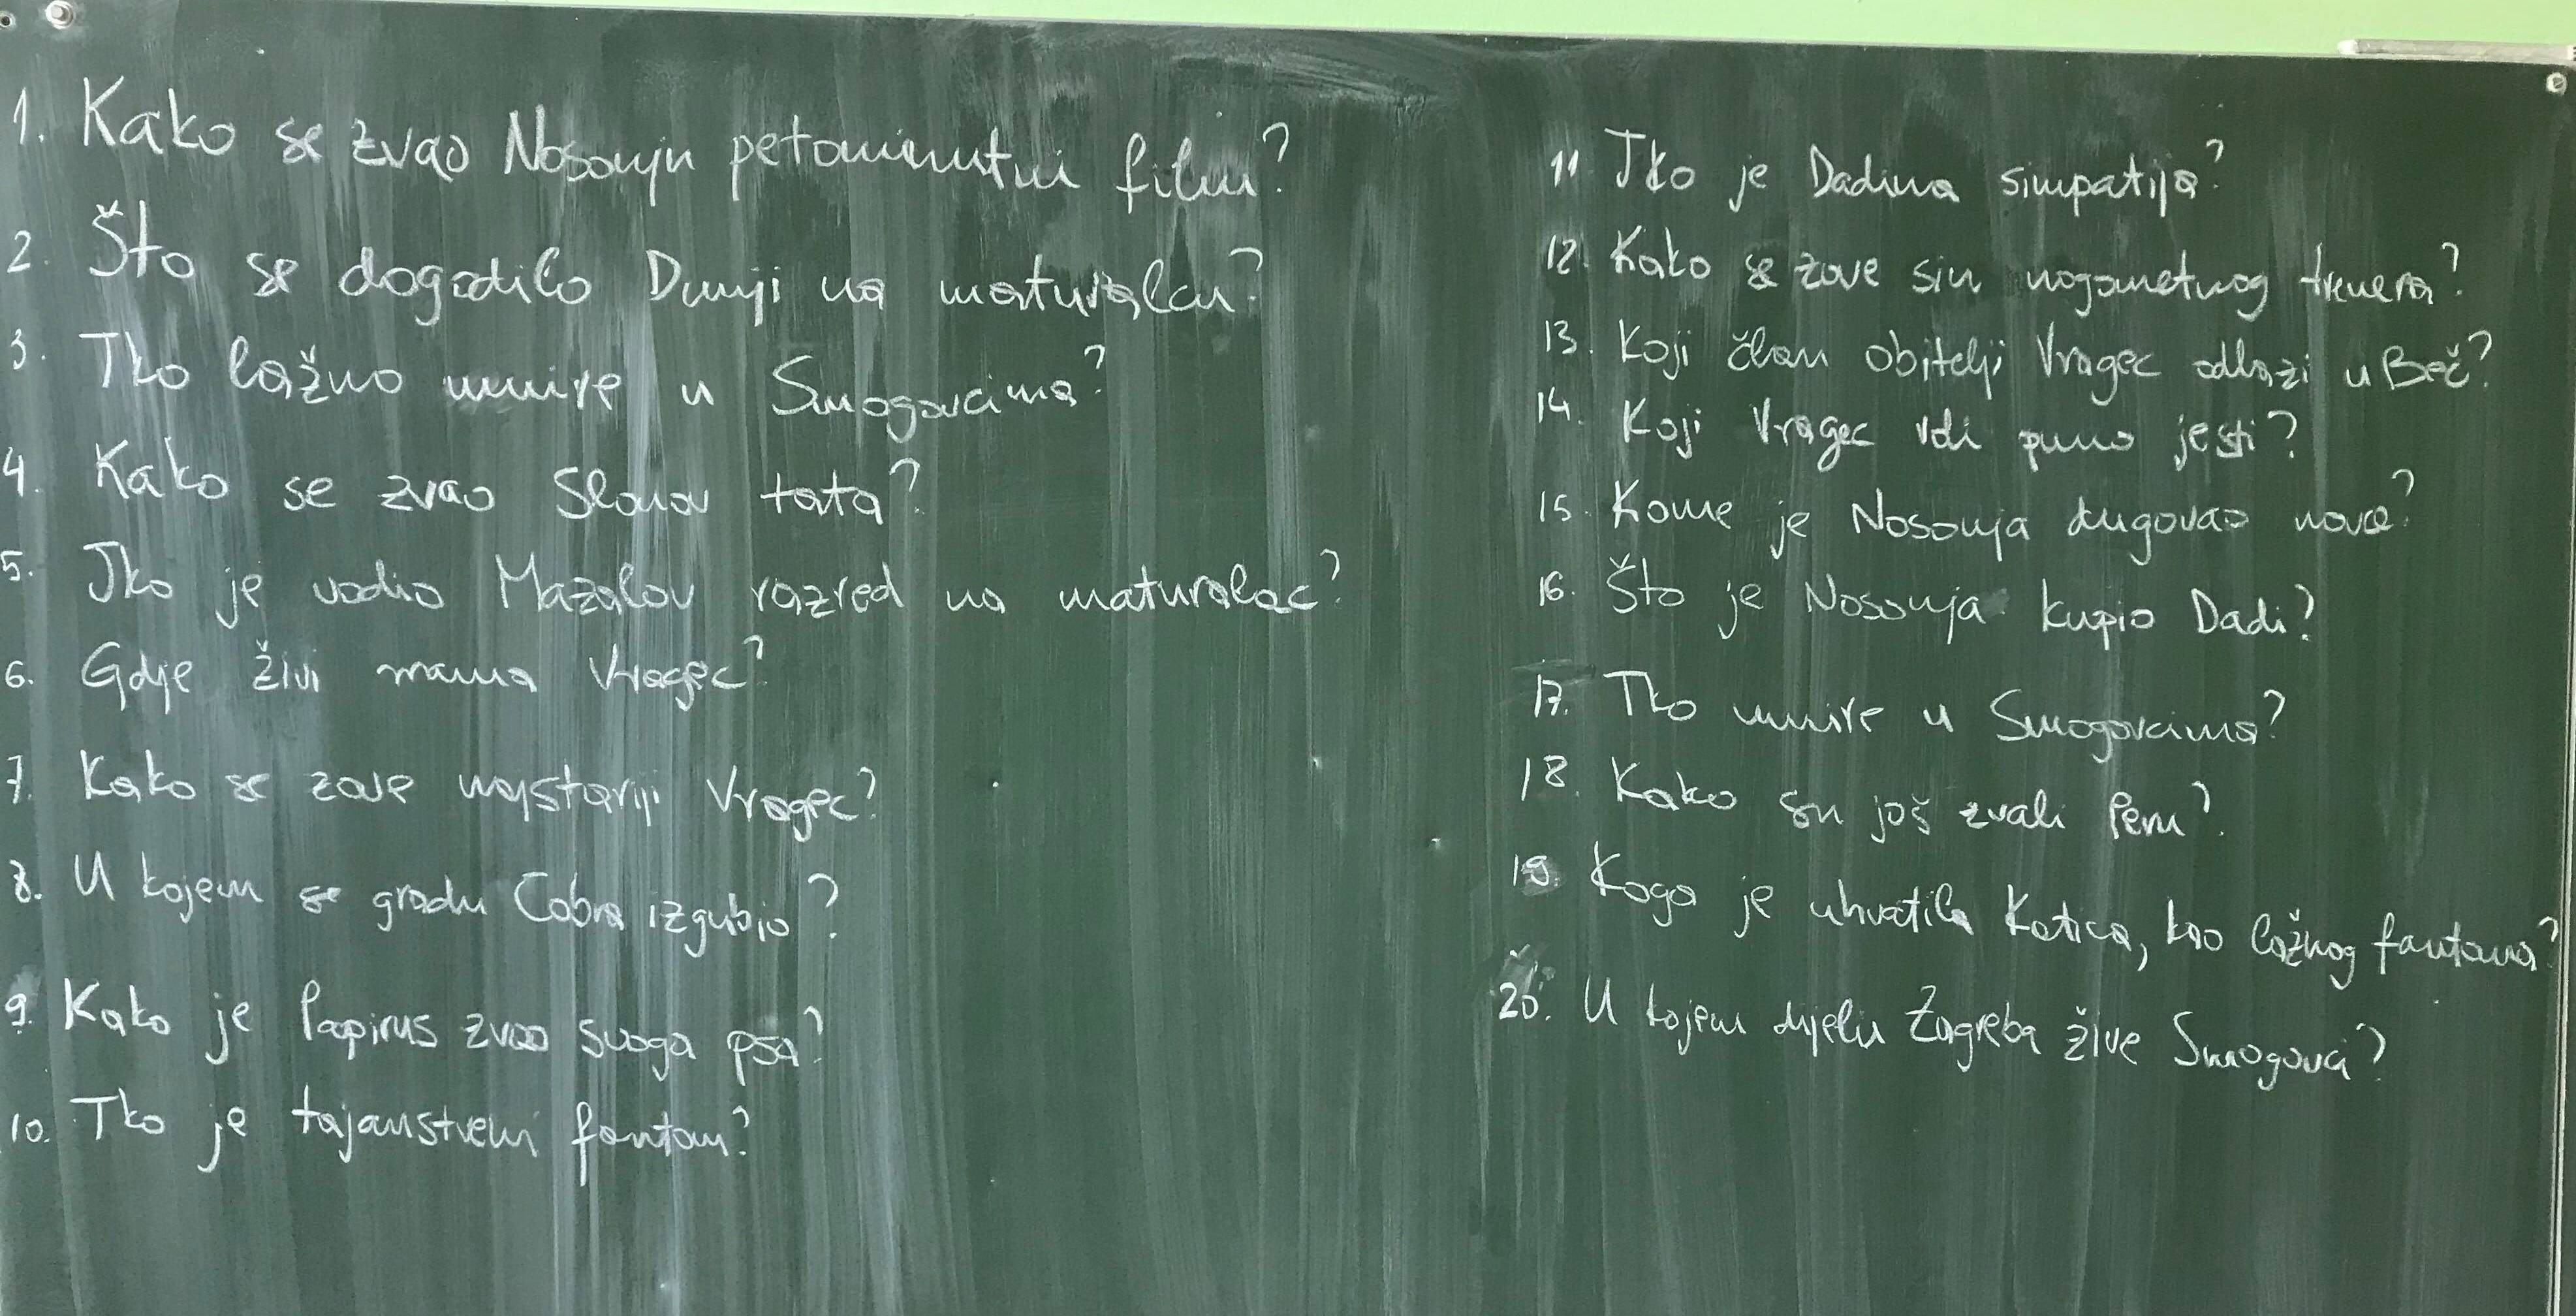 1. Kako se zvao Nosonjin petominutni film?
2. Što se dogodilo Dunji na maturalcu?
3. Tko lažno umire u Smogovcima?
4. Kako se zvao Slonov tata?
5. Tko je vodio Mazalov razred na maturalac?
6. Gdje živi mama Vragec?
7. Kako se zove najstariji Vragec?
8. U kojem se gradu Cobra izgubio?
9. Kako je Papirus zvao svoga psa?
10. Tko je tajanstveni fantom?
11 Tko je Dadina simpatija?
12. Kako se zove sin nogometnog trenera?
13. Koji član obitelji Vragec odlazi u Beč?
14. Koji Vragec voli puno jesti?
15. Kome je Nosonja dugovao novce?
16. Što je Nosonja kupio Dadi?
17. Tko umire u Smogovcima?
18. Kako su još zvali Peru?
19. Koga je uhvatila Katica, kao lažnog fantoma?
20. U kojem dijelu Zagreba žive Smogovci?